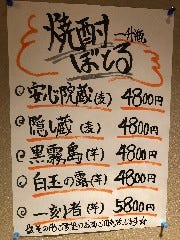 焼酎 一升瓶
ぼとる
安心院蔵(麦) 4800円
隠し蔵(麦) 4800円
黒霧島(芋) 4800円
白玉の露(芋) 4800円
一刻者(芋) 5800円